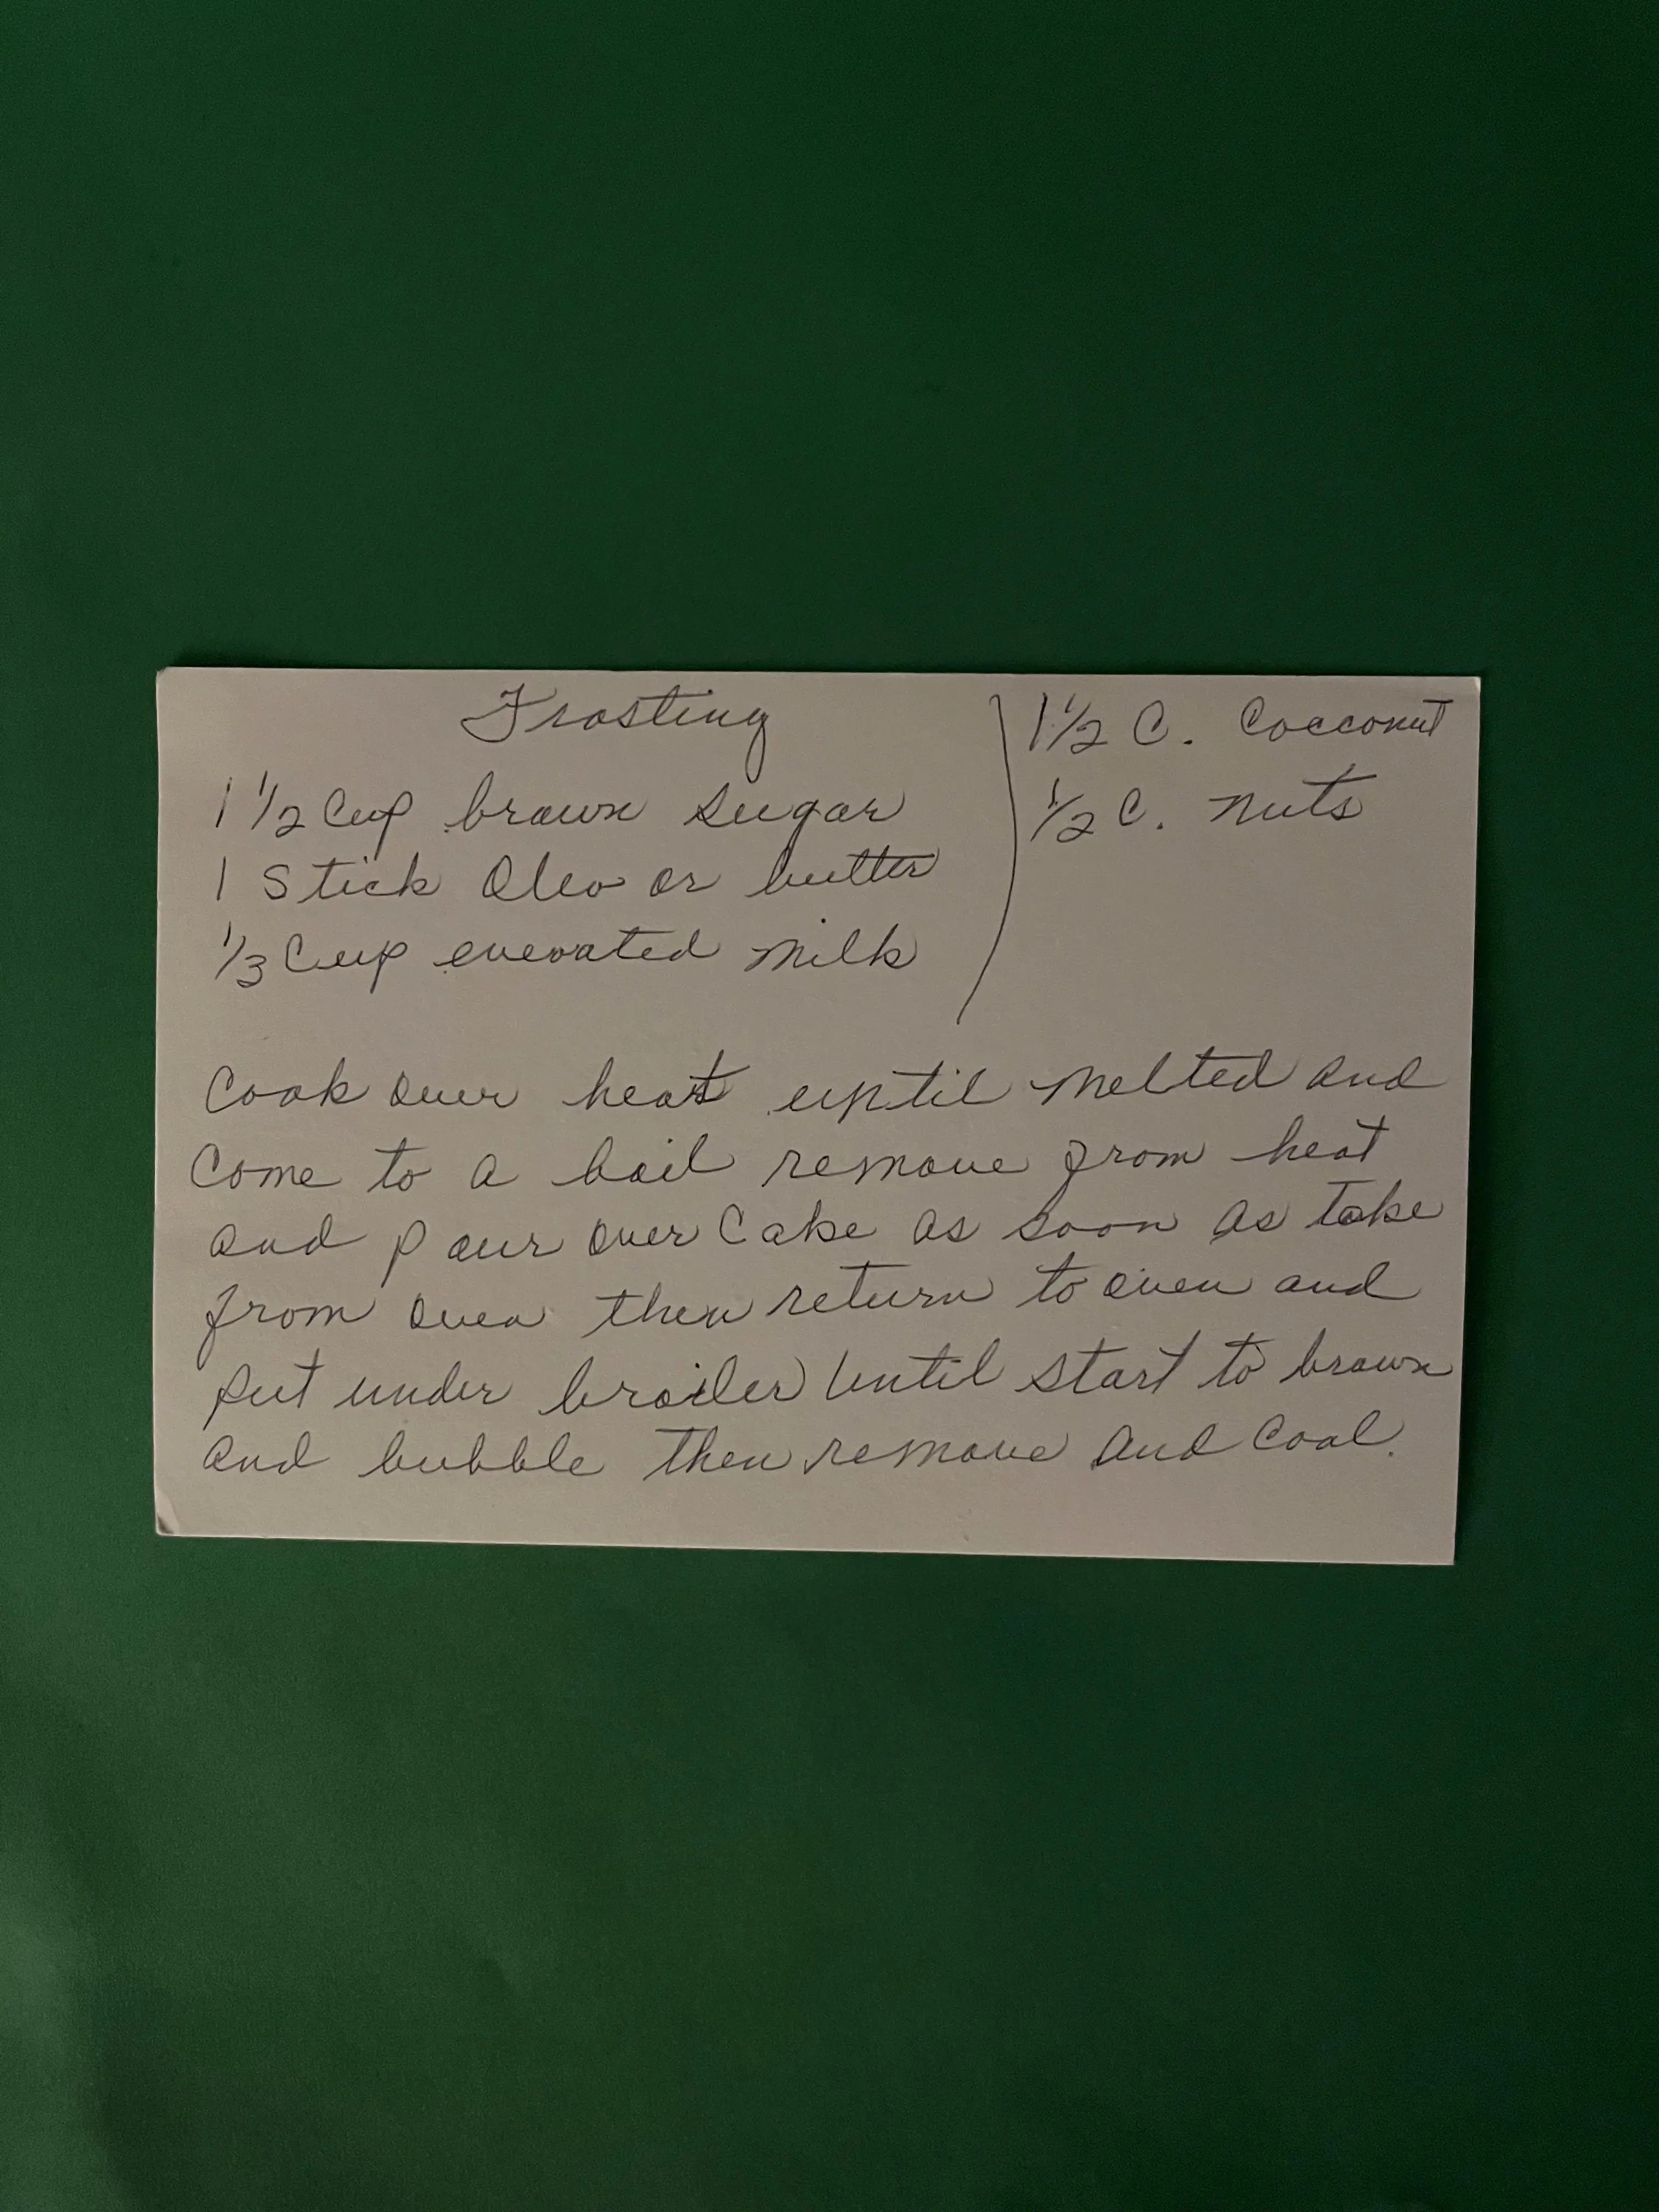 Frosting
1 1/2 Cup brown sugar
1 Stick Oleo or butter
1/3 Cup evevated milk
1 1/2 C. Cocconut
1/2 C. nuts
Cook over heat uptil melted and
Come to a boil remove from heat
and pour over Cake as soon as take
from oven then return to oven and
put under broiler until start to brown
and bubble then remove and Cool.